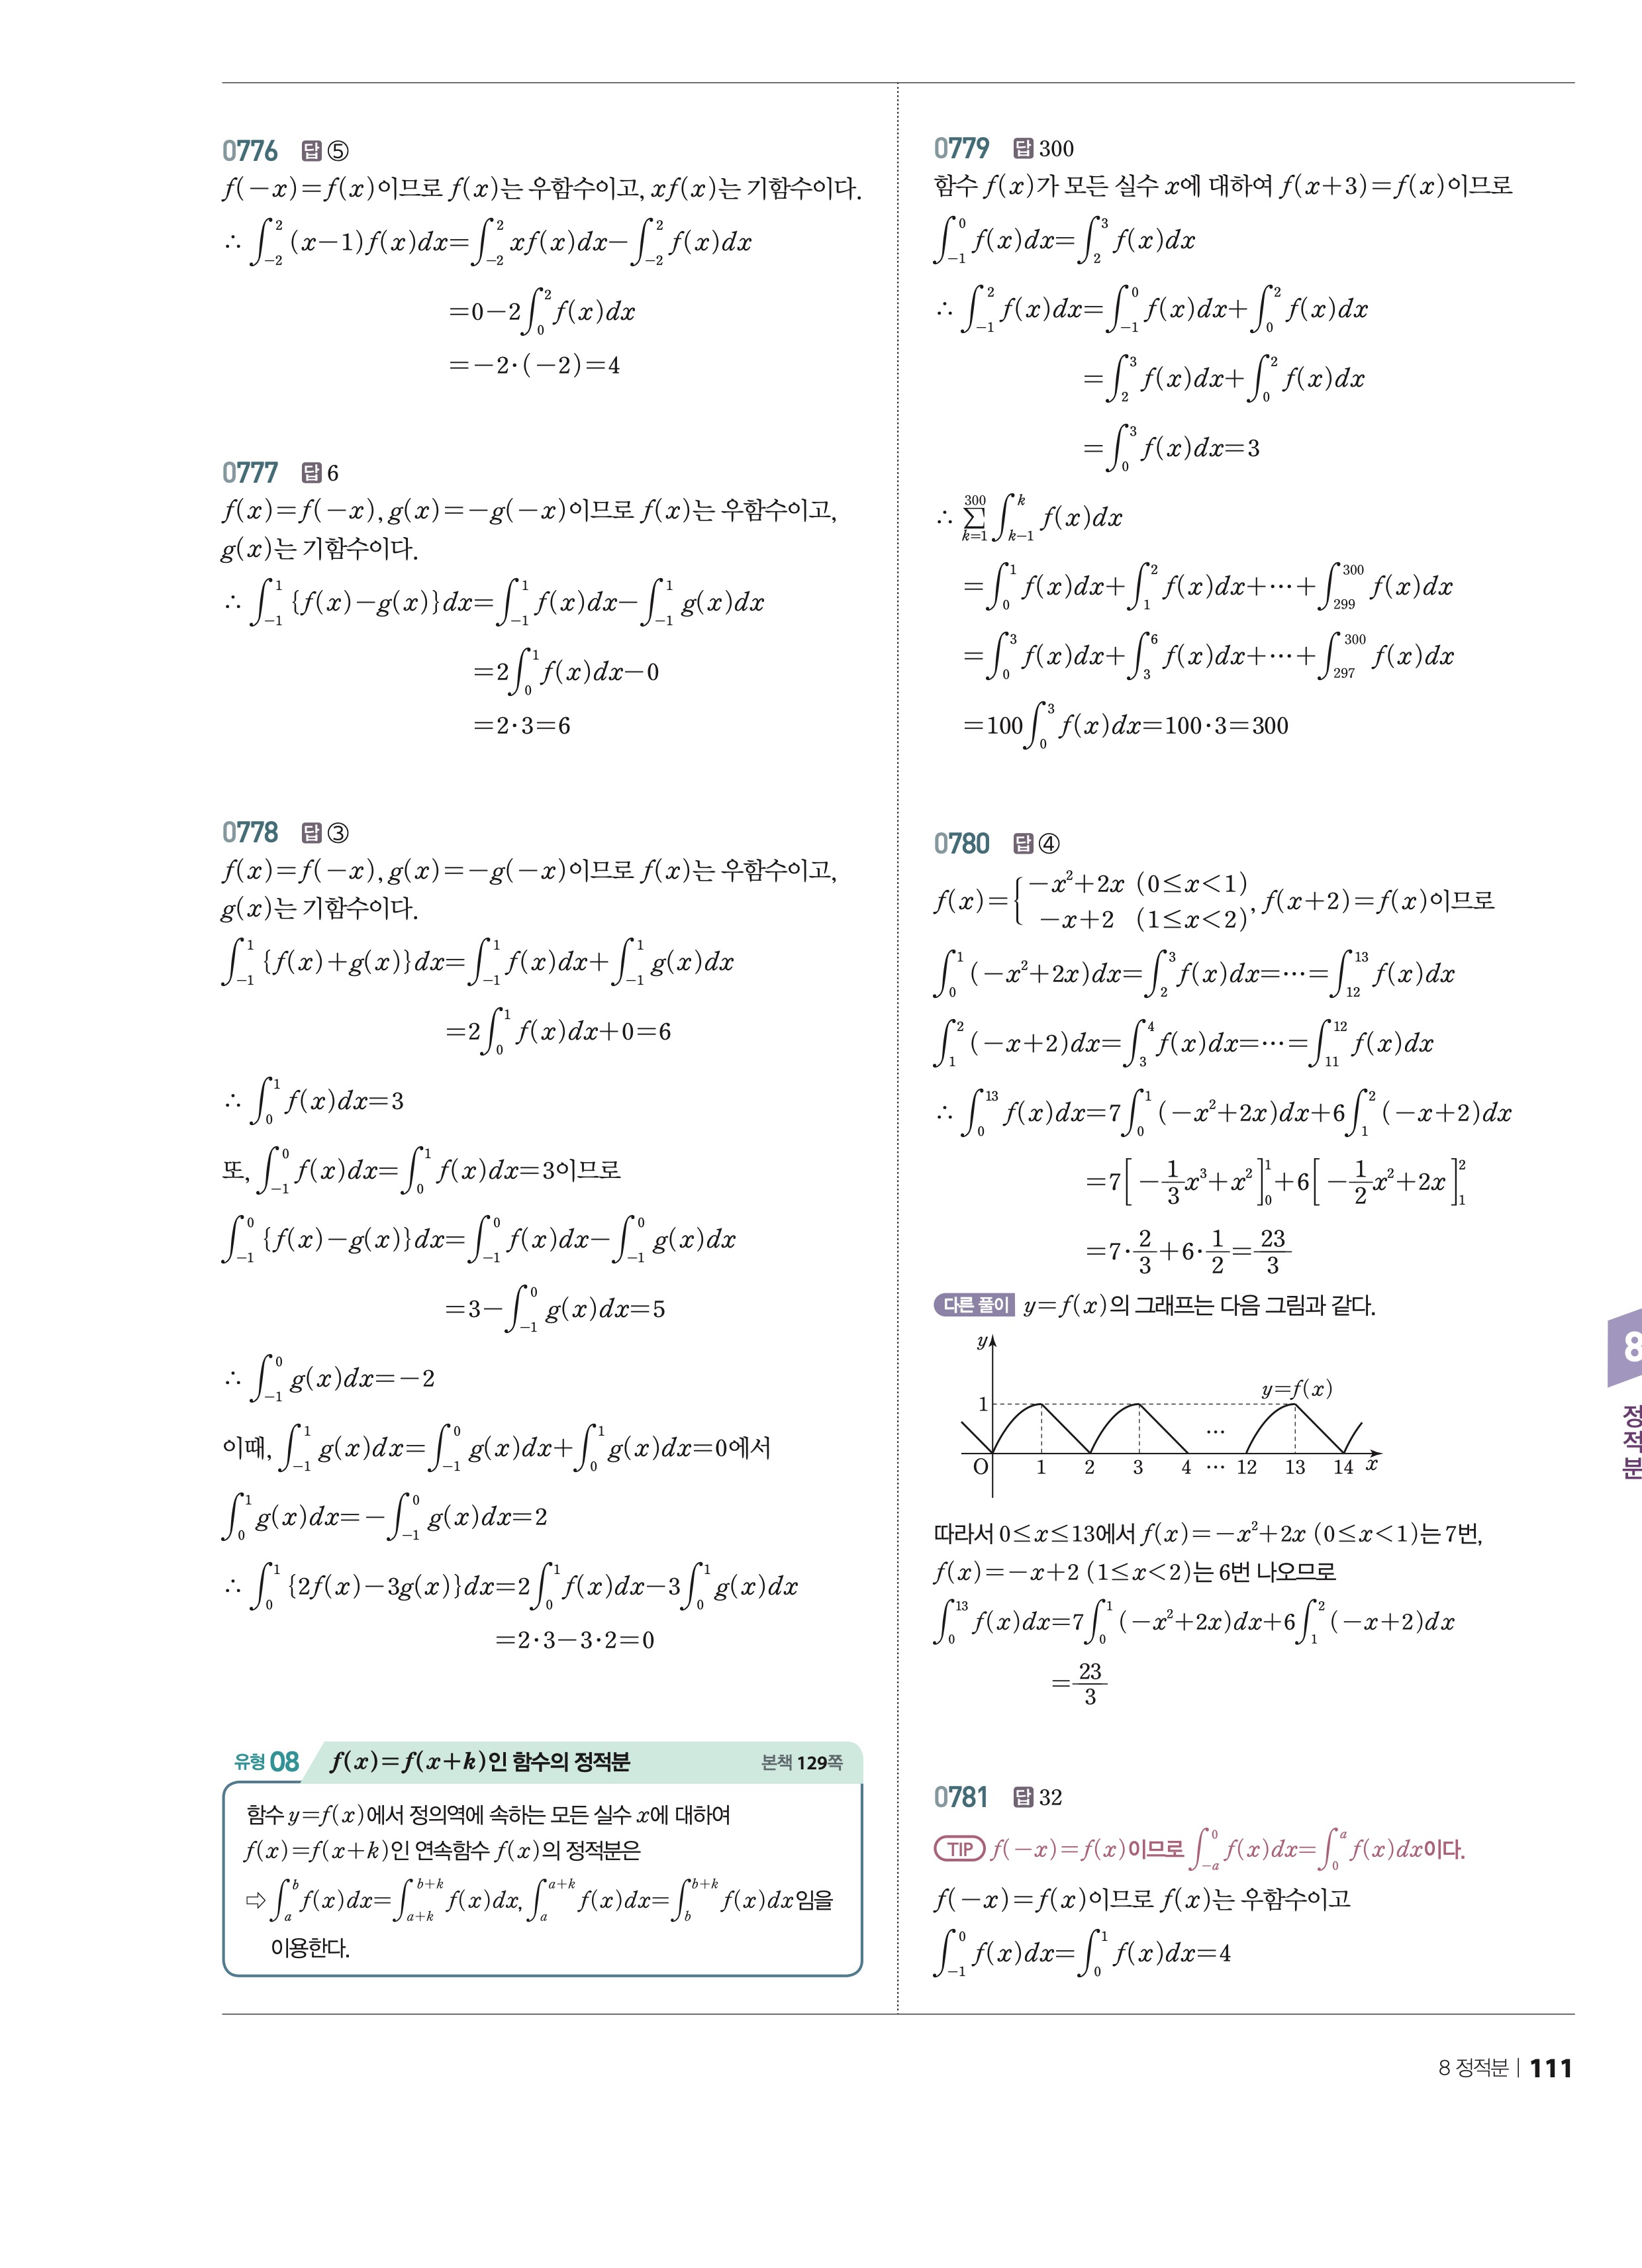 0776 답 ⑤
f(-x)=f(x)이므로 f(x)는 우함수이고, xf(x)는 기함수이다.
∴ ∫_{-2}^{2} (x-1)f(x)dx=∫_{-2}^{2} xf(x)dx-∫_{-2}^{2} f(x)dx
=0-2∫_{0}^{2} f(x)dx
=-2·(-2)=4
0777 답 6
f(x)=f(-x), g(x)=-g(-x)이므로 f(x)는 우함수이고,
g(x)는 기함수이다.
∴ ∫_{-1}^{1} {f(x)-g(x)}dx=∫_{-1}^{1} f(x)dx-∫_{-1}^{1} g(x)dx
=2∫_{0}^{1} f(x)dx-0
=2·3=6
0778 답 ③
f(x)=f(-x), g(x)=-g(-x)이므로 f(x)는 우함수이고,
g(x)는 기함수이다.
∫_{-1}^{1} {f(x)+g(x)}dx=∫_{-1}^{1} f(x)dx+∫_{-1}^{1} g(x)dx
=2∫_{0}^{1} f(x)dx+0=6
∴ ∫_{0}^{1} f(x)dx=3
또, ∫_{-1}^{0} f(x)dx=∫_{0}^{1} f(x)dx=3이므로
∫_{-1}^{0} {f(x)-g(x)}dx=∫_{-1}^{0} f(x)dx-∫_{-1}^{0} g(x)dx
=3-∫_{-1}^{0} g(x)dx=5
∴ ∫_{-1}^{0} g(x)dx=-2
이때, ∫_{-1}^{1} g(x)dx=∫_{-1}^{0} g(x)dx+∫_{0}^{1} g(x)dx=0에서
∫_{0}^{1} g(x)dx=-∫_{-1}^{0} g(x)dx=2
∴ ∫_{0}^{1} {2f(x)-3g(x)}dx=2∫_{0}^{1} f(x)dx-3∫_{0}^{1} g(x)dx
=2·3-3·2=0
유형 08 f(x)=f(x+k)인 함수의 정적분 본책 129쪽
함수 y=f(x)에서 정의역에 속하는 모든 실수 x에 대하여
f(x)=f(x+k)인 연속함수 f(x)의 정적분은
⇨ ∫_{a}^{b} f(x)dx=∫_{a+k}^{b+k} f(x)dx, ∫_{a}^{a+k} f(x)dx=∫_{b}^{b+k} f(x)dx임을
이용한다.
0779 답 300
함수 f(x)가 모든 실수 x에 대하여 f(x+3)=f(x)이므로
∫_{-1}^{0} f(x)dx=∫_{2}^{3} f(x)dx
∴ ∫_{-1}^{2} f(x)dx=∫_{-1}^{0} f(x)dx+∫_{0}^{2} f(x)dx
=∫_{2}^{3} f(x)dx+∫_{0}^{2} f(x)dx
=∫_{0}^{3} f(x)dx=3
∴ ∑_{k=1}^{300} ∫_{k-1}^{k} f(x)dx
=∫_{0}^{1} f(x)dx+∫_{1}^{2} f(x)dx+⋯+∫_{299}^{300} f(x)dx
=∫_{0}^{3} f(x)dx+∫_{3}^{6} f(x)dx+⋯+∫_{297}^{300} f(x)dx
=100∫_{0}^{3} f(x)dx=100·3=300
0780 답 ④
f(x)={ -x²+2x (0≤x<1)
-x+2 (1≤x<2), f(x+2)=f(x)이므로
∫_{0}^{1} (-x²+2x)dx=∫_{2}^{3} f(x)dx=⋯=∫_{12}^{13} f(x)dx
∫_{1}^{2} (-x+2)dx=∫_{3}^{4} f(x)dx=⋯=∫_{11}^{12} f(x)dx
∴ ∫_{0}^{13} f(x)dx=7∫_{0}^{1} (-x²+2x)dx+6∫_{1}^{2} (-x+2)dx
=7[-1/3 x³+x²]_{0}^{1}+6[-1/2 x²+2x]_{1}^{2}
=7·2/3+6·1/2=23/3
다른 풀이 y=f(x)의 그래프는 다음 그림과 같다.
y
y=f(x)
1
⋯
O 1 2 3 4 ⋯ 12 13 14 x
따라서 0≤x≤13에서 f(x)=-x²+2x (0≤x<1)는 7번,
f(x)=-x+2 (1≤x<2)는 6번 나오므로
∫_{0}^{13} f(x)dx=7∫_{0}^{1} (-x²+2x)dx+6∫_{1}^{2} (-x+2)dx
=23/3
0781 답 32
TIP f(-x)=f(x)이므로 ∫_{-a}^{0} f(x)dx=∫_{0}^{a} f(x)dx이다.
f(-x)=f(x)이므로 f(x)는 우함수이고
∫_{-1}^{0} f(x)dx=∫_{0}^{1} f(x)dx=4
8
정적분
8 정적분 | 111